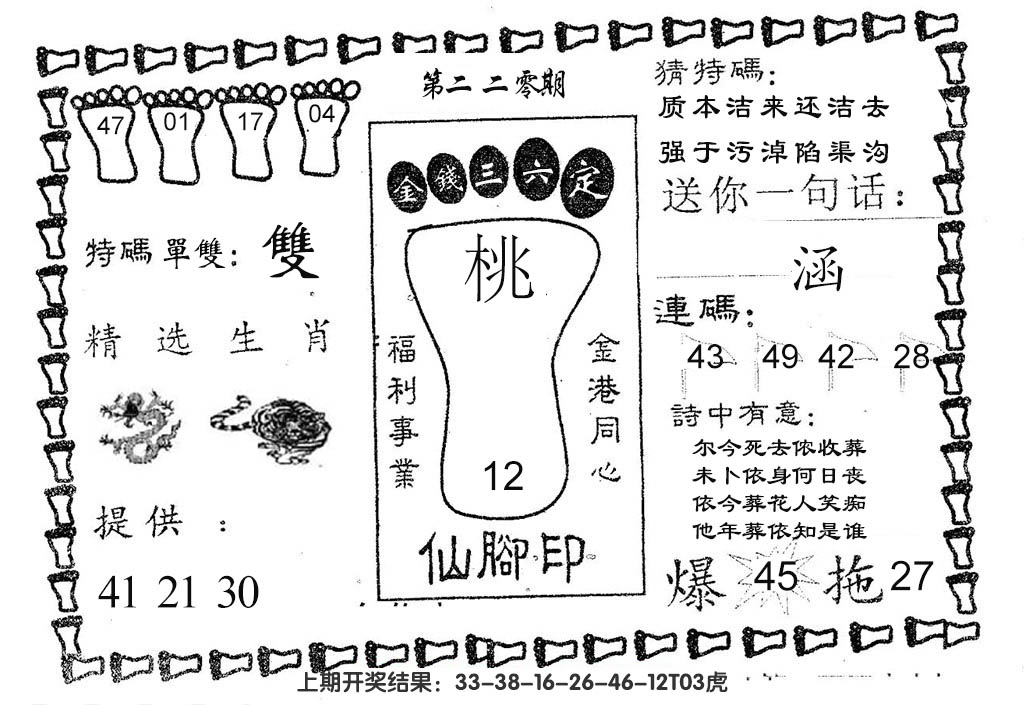 第二二零期
47 01 17 04
特碼單雙：雙
精选生肖
提供：
41 21 30
金錢三六定
桃
福利事業
金港同心
12
仙腳印
猜特碼：
质本洁来还洁去
强于污淖陷渠沟
送你一句话：
涵
連碼：
43 49 42 28
詩中有意：
尔今死去侬收葬
未卜依身何日丧
依今葬花人笑痴
他年葬依知是谁
爆 45 拖 27
上期开奖结果：33-38-16-26-46-12T03虎